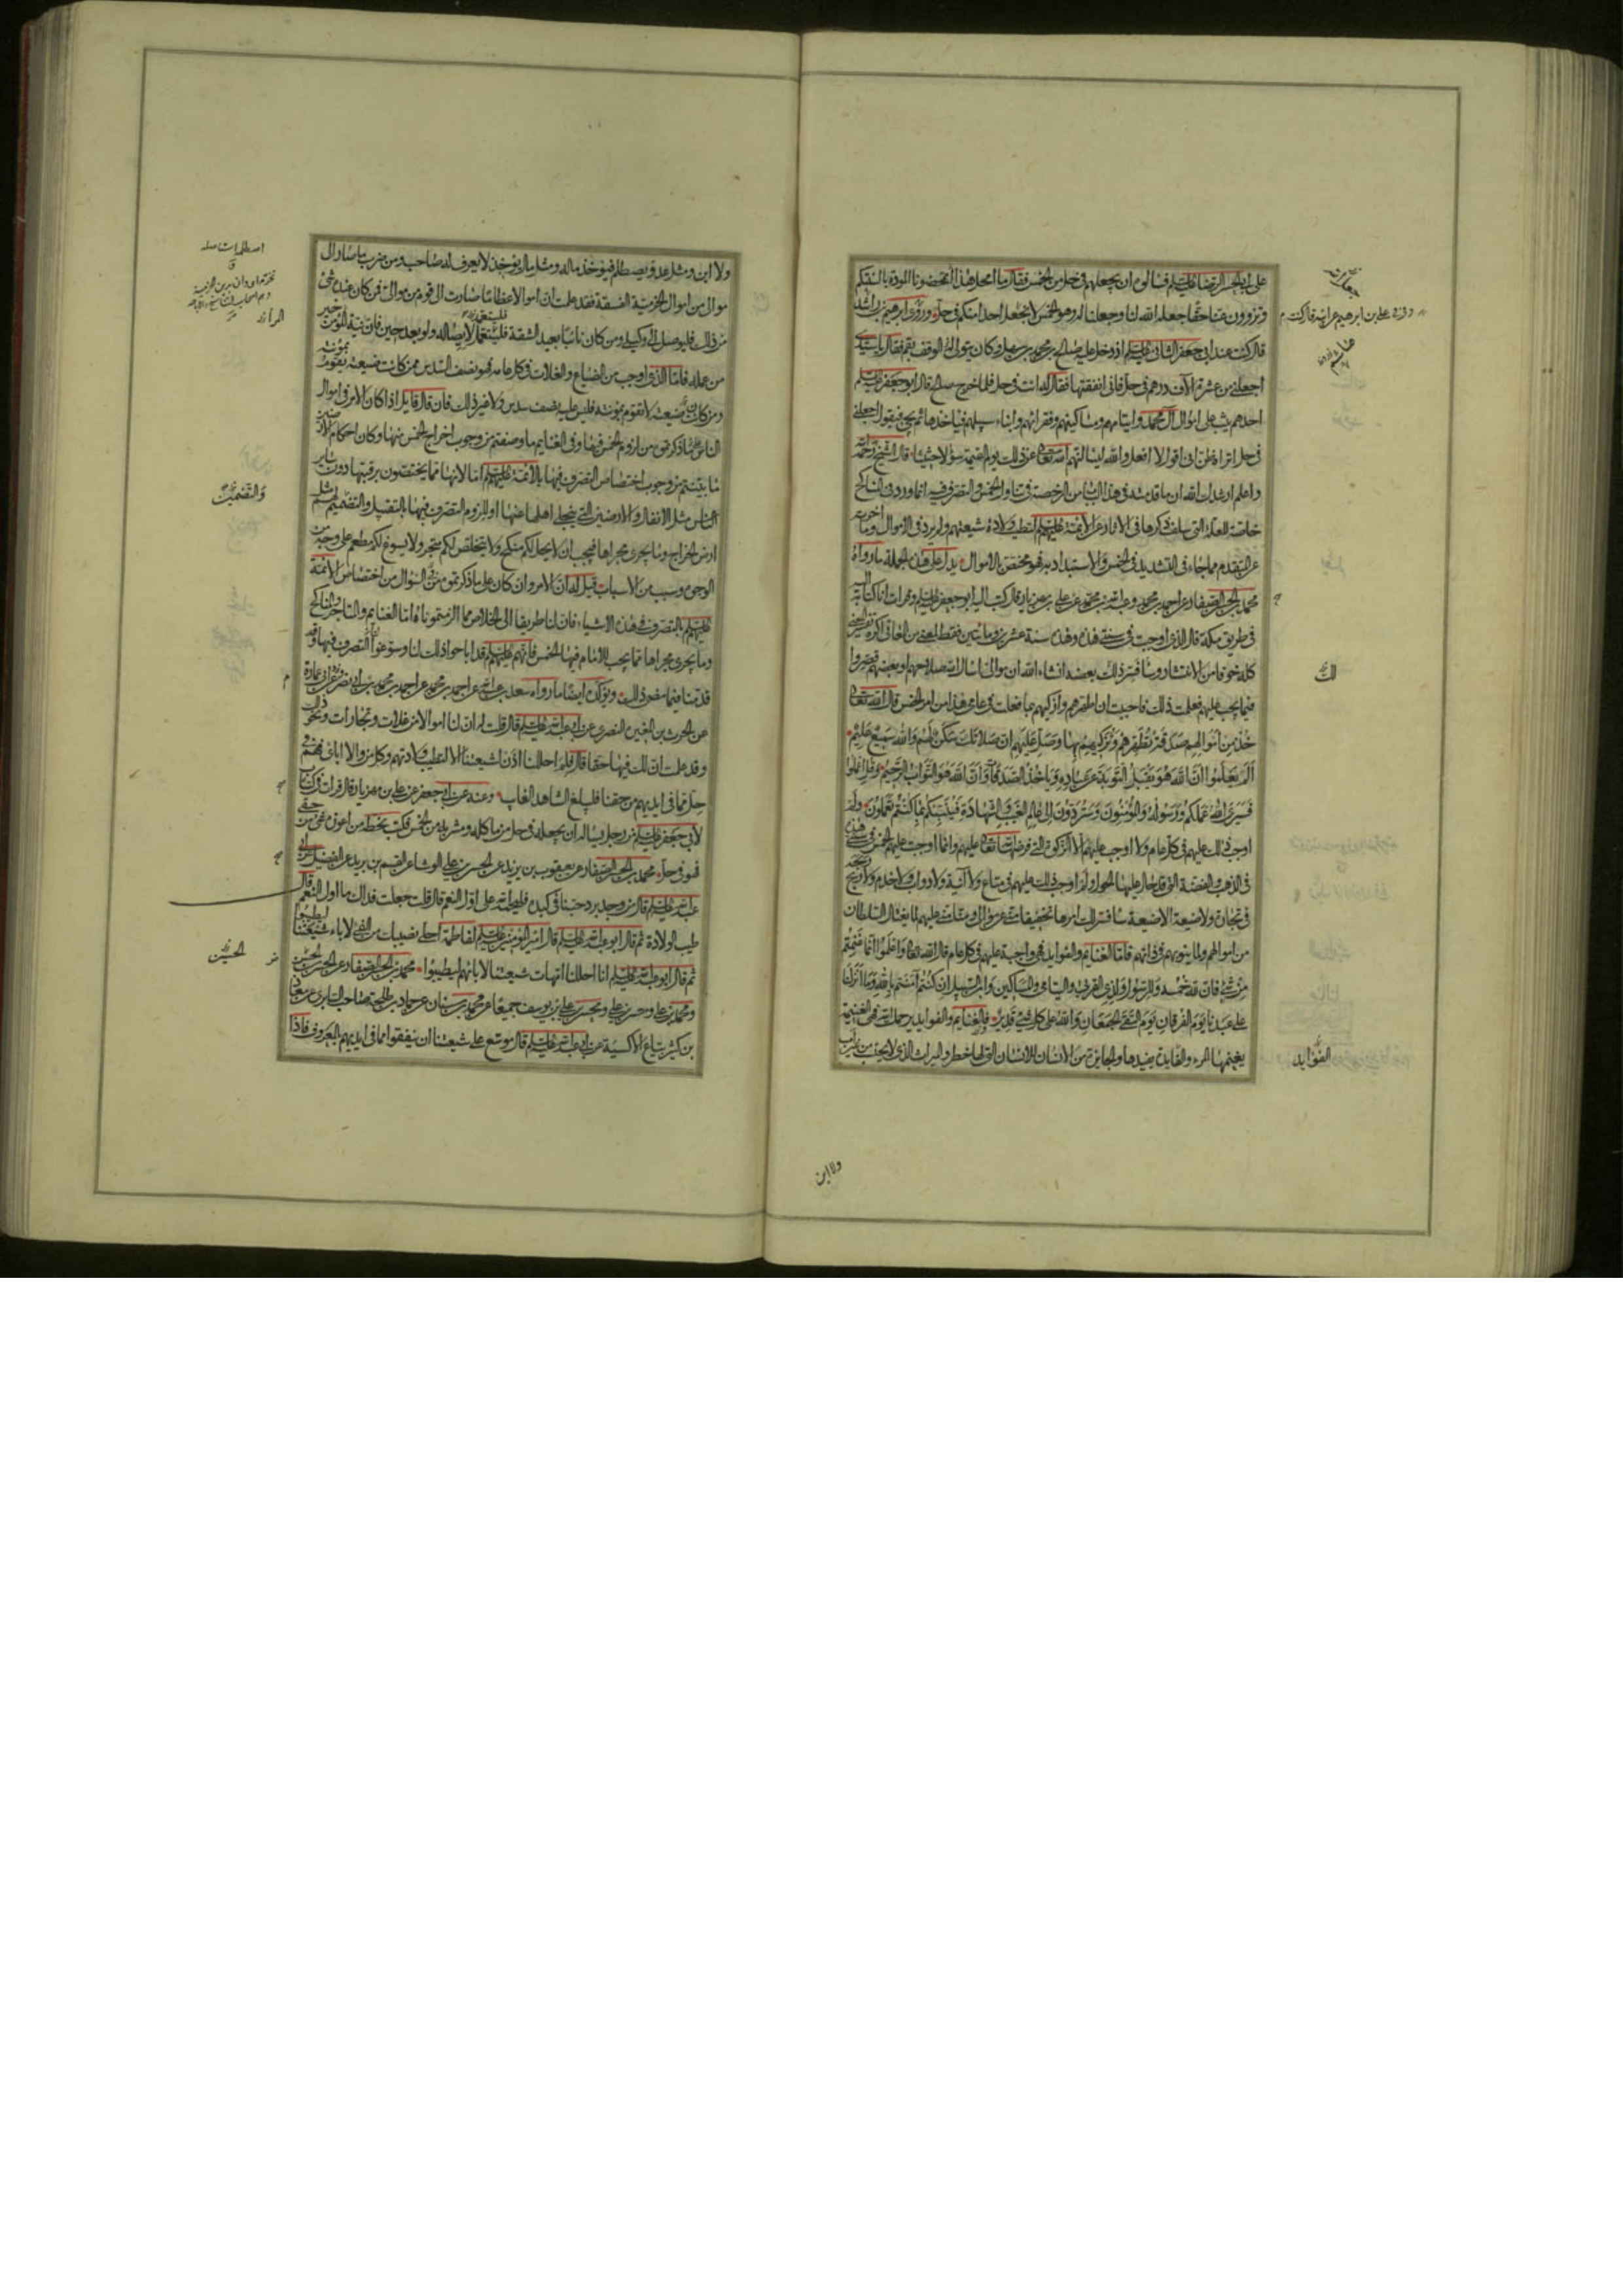 على ابي الحسن الرضا عليه السلم فسالوه ان يجعلهم في حل من الخمس فقال ما امحل هذا تمحضونا المودة بالسنتكم
وتزوون عنا حقا جعله الله لنا وجعلنا له وهو الخمس لا نجعل احدا منكم في حل وروى ابراهيم بن هاشم
قال كنت عند ابي جعفر الثاني عليه السلم اذ دخل عليه صالح بن محمد بن سهل وكان يتولى له الوقف بقم فقال يا سيدي
اجعلني من عشرة الاف درهم في حل فاني انفقتها فقال له انت في حل فلما خرج صالح قال ابو جعفر عليه السلم
احدهم يثب على اموال آل محمد وايتامهم ومساكينهم وفقرائهم وابناء سبيلهم فياخذها ثم يجئ فيقول اجعلني
في حل اتراه ظن اني اقول لا افعل والله ليسالنهم الله تعالى عن ذلك يوم القيمة سؤالا حثيثا قال الشيخ رحمه الله
واعلم ارشدك الله ان ما قدمته في هذا الباب من الرخصة في تناول الخمس والتصرف فيه انما ورد في المناكح
خاصة للعلة التي سلف ذكرها في الاثار عن الائمة عليهم السلم لتطيب ولادة شيعتهم ولم يرد في الاموال وما اخرته
عن المتقدم مما جاء في التشديد في الخمس والاستبداد به فهو مختص بالاموال يدل على هذه الجملة ما رواه
محمد بن الحسن الصفار عن احمد بن محمد وعبد الله بن محمد عن علي بن مهزيار قال كتب اليه ابو جعفر عليه السلم وقرات انا كتابه اليه
في طريق مكة قال الذي اوجبت في سنتي هذه وهذه سنة عشرين ومائتين فقط لمعنى من المعاني اكره تفسير المعنى
كله خوفا من الانتشار وسافسر ذلك بعضه انشاء الله ان موالي اسال الله صلاحهم او بعضهم قصروا
فيما يجب عليهم فعلمت ذلك فاحببت ان اطهرهم وازكيهم بما فعلت في عامي هذا من امر الخمس قال الله تعالى
خُذْ مِنْ اَمْوالِهِمْ صَدَقَةً تُطَهِّرُهُمْ وَتُزَكِّيهِمْ بِهَا وَصَلِّ عَلَيْهِمْ اِنَّ صَلاتَكَ سَكَنٌ لَهُمْ وَاللهُ سَمِيعٌ عَلِيمٌ
اَلَمْ يَعْلَمُوا اَنَّ اللهَ هُوَ يَقْبَلُ التَّوْبَةَ عَنْ عِبَادِهِ وَيَاْخُذُ الصَّدَقَاتِ وَاَنَّ اللهَ هُوَ التَّوَّابُ الرَّحِيمُ وَقُلِ اعْمَلُوا
فَسَيَرَى اللهُ عَمَلَكُمْ وَرَسُولُهُ وَالْمُؤْمِنُونَ وَسَتُرَدُّونَ اِلَى عَالِمِ الْغَيْبِ وَالشَّهَادَةِ فَيُنَبِّئُكُمْ بِمَا كُنْتُمْ تَعْمَلُونَ ولم
اوجب ذلك عليهم في كل عام ولا اوجب عليهم الا الزكوة التي فرضها الله تعالى عليهم وانما اوجبت عليهم الخمس في سنتي هذه
في الذهب والفضة التي قد حال عليها الحول ولم اوجب ذلك عليهم في متاع ولا آنية ولا دواب ولا خدم ولا ربح ربحه
في تجارة ولا ضيعة الا ضيعة سافسر لك امرها تخفيفا مني عن موالي ومنا مني عليهم لما يغتال السلطان
من اموالهم ولما ينوبهم في ذاتهم فاما الغنايم والفوايد فهي واجبة عليهم في كل عام قال الله تعالى وَاعْلَمُوا اَنَّمَا غَنِمْتُمْ
مِنْ شَيْءٍ فَاَنَّ لِلّهِ خُمُسَهُ وَلِلرَّسُولِ وَلِذِي الْقُرْبَى وَالْيَتَامَى وَالْمَسَاكِينِ وَابْنِ السَّبِيلِ اِنْ كُنْتُمْ آمَنْتُمْ بِاللهِ وَمَا اَنْزَلْنَا
عَلَى عَبْدِنَا يَوْمَ الْفُرْقَانِ يَوْمَ الْتَقَى الْجَمْعَانِ وَاللهُ عَلَى كُلِّ شَيْءٍ قَدِيرٌ فالغنايم والفوايد يرحمك الله فهي الغنيمة
يغنمها المرء والفايدة يفيدها والجايزة من الانسان للانسان التي لها خطر والميراث الذي لا يحتسب من غير اب
وروى علي بن ابراهيم عن ابيه قال كنت
لك
الفوايد
ولا ابن
ولا ابن ومثل عدو يصطلم فيؤخذ ماله ومثل مال يؤخذ لا يعرف له صاحب ومن ضرب ما صار الى
موالي من اموال الخرمية الفسقة فقد علمت ان اموالا عظاما صارت الى قوم من موالي فمن كان عنده شئ
من ذلك فليوصل الى وكيلي ومن كان نائيا بعيد الشقة فليتعمد لايصاله ولو بعد حين فان نية المؤمن خير
من عمله فاما الذي اوجب من الضياع والغلات في كل عام فهو نصف السدس ممن كانت ضيعته تقوم بمؤنته
ومن كانت ضيعته لا تقوم بمؤنته فليس عليه نصف سدس ولا غير ذلك فان قال قايل اذا كان الامر في اموال
الناس على ما ذكرتموه من لزوم الخمس فيها وفي الغنايم ما وصفتم من وجوب اخراج الخمس منها وكان احكام الارضين
ما بينتم من وجوب اختصاص التصرف فيها بالائمة عليهم السلم اما لانها مما يختصون برقبتها دون ساير
الناس مثل الانفال والارضين التي ينجلي اهلها عنها او للزوم التصرف فيها بالتقبيل والتضمين لهم مثل
ارض الخراج وما يجري مجراها فيجب ان لا يحل لكم منكح ولا يتخلص لكم متجر ولا يسوغ لكم مطعم على وجه من
الوجوه وسبب من الاسباب قيل له ان الامر وان كان على ما ذكرتموه من السؤال من اختصاص الائمة
عليهم السلم بالتصرف في هذه الاشياء فان لنا طريقا الى الخلاص مما الزمتموناه اما الغنايم والمتاجر والمناكح
وما يجري مجراها مما يجب للامام فيها الخمس فانهم عليهم السلم قد اباحوا ذلك لنا وسوغوا لنا التصرف فيها وقد
قدمنا فيما مضى ذلك ويؤكده ايضا ما رواه سعد بن عبد الله عن احمد بن محمد عن احمد بن محمد بن ابي نصر عن ابي عمارة
عن الحرث بن المغيرة النصري عن ابي عبد الله عليه السلم قال قلت له ان لنا اموالا من غلات وتجارات ونحو ذلك
وقد علمت ان لك فيها حقا قال فلم احللنا اذن لشيعتنا الا لتطيب ولادتهم وكل من والى ابائي فهم في
حل مما في ايديهم من حقنا فليبلغ الشاهد الغايب وعنه عن ابي جعفر عن علي بن مهزيار قال قرات في كتاب
لابي جعفر عليه السلم من رجل يساله ان يجعله في حل من ماكله ومشربه من الخمس فكتب بخطه من اعوزه شئ من حقي
فهو في حل محمد بن الحسن الصفار عن يعقوب بن يزيد عن الحسن بن علي الوشا عن القسم بن بريد عن الفضيل عن ابي
عبد الله عليه السلم قال من وجد برد حبنا في كبده فليحمد الله على اول النعم قال قلت جعلت فداك ما اول النعم قال
طيب الولادة ثم قال ابو عبد الله عليه السلم قال امير المؤمنين عليه السلم لفاطمة احلي نصيبك من الفئ لاباء شيعتنا ليطيبوا
ثم قال ابو عبد الله عليه السلم انا احللنا امهات شيعتنا لابائهم ليطيبوا محمد بن الحسن الصفار عن الحسن بن الحسن
ومحمد بن علي وحسن بن علي ومحسن بن علي بن يوسف جميعا عن محمد بن سنان عن حماد بن طلحة صاحب السابري عن معاذ
بن كثير بياع الاكسية عن ابي عبد الله عليه السلم قال موسع على شيعتنا ان ينفقوا مما في ايديهم بالمعروف فاذا
والتضمين
الحسين